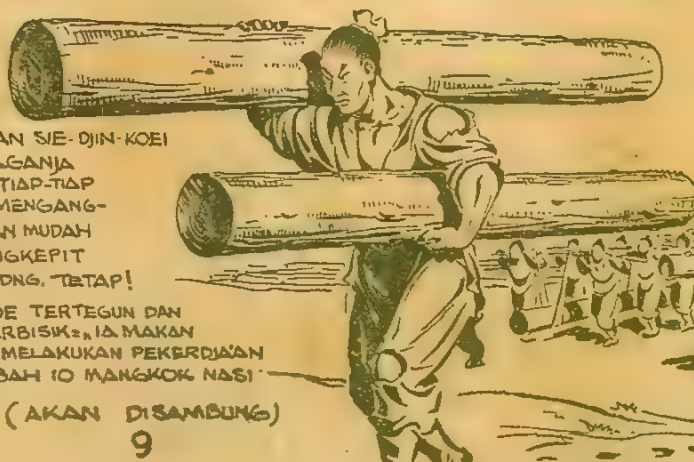 AN SIE-DJIN-KOEI
GANJA
TIAP-TIAP
MENGANG-
AN MUDAH
NGKEPIT
ONG. TETAP!
OE TERTEGUN DAN
ERBISIK2n IA MAKAN
MELAKUKAN PEKERDJA'AN
BAH 10 MANGKOK NASI
(AKAN DISAMBUNG)
9